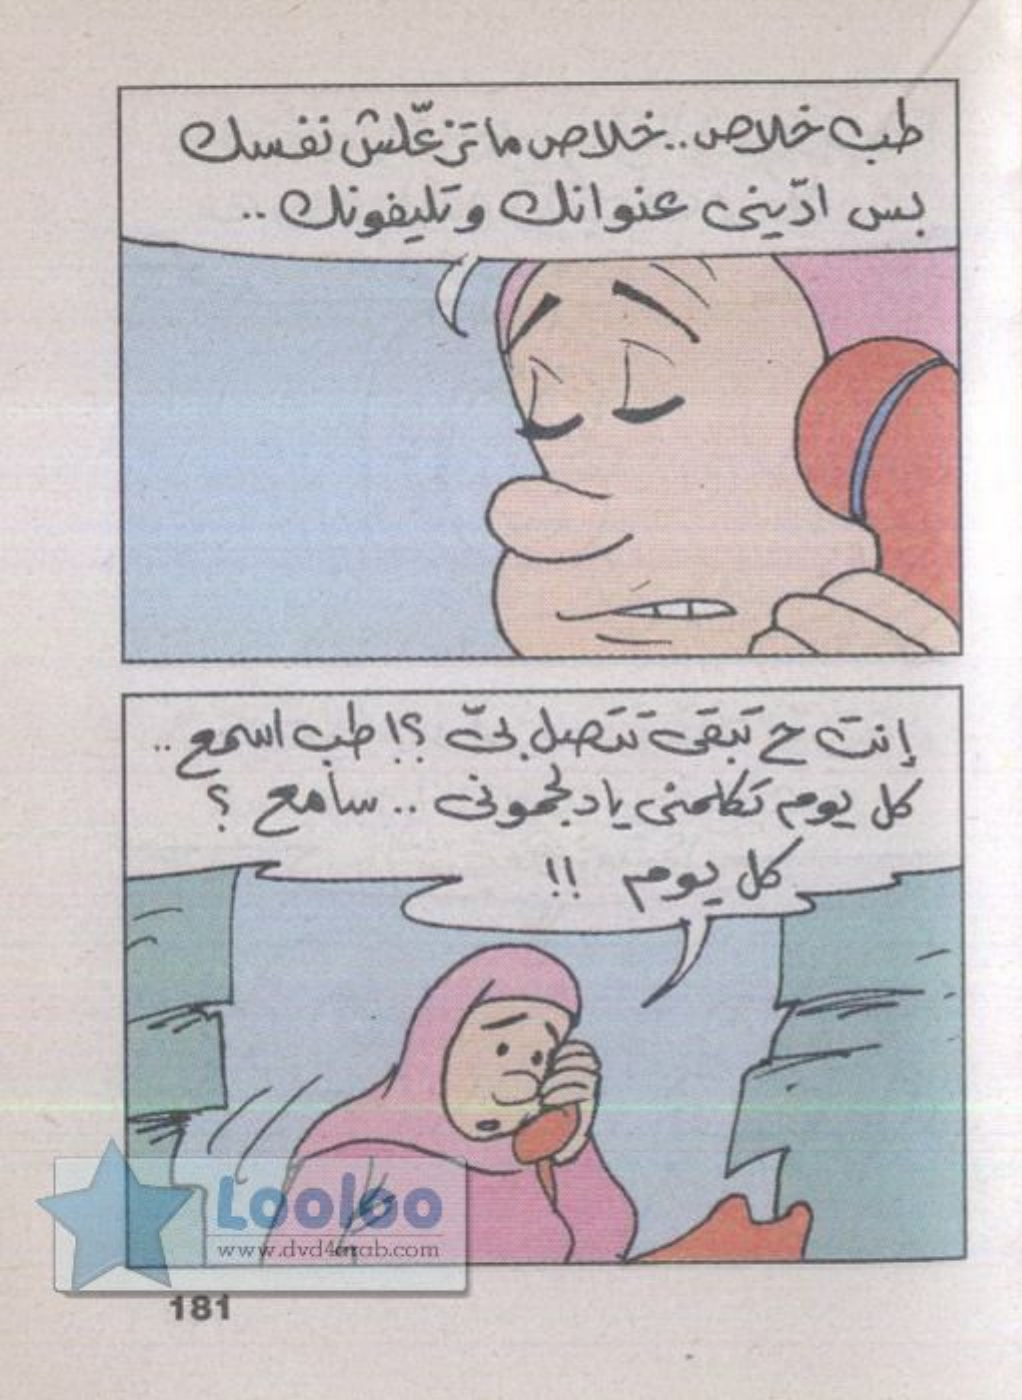 طب خلاص.. خلاص ما تزعّلش نفسك
بس ادّينى عنوانك وتليفونك ..
إنت ح تبقى تتصل بىّ ؟! طب اسمع ..
كل يوم تكلمنى يا دلجمونى .. سامع ؟
كل يوم !!
Looloo
www.dvd4arab.com
181